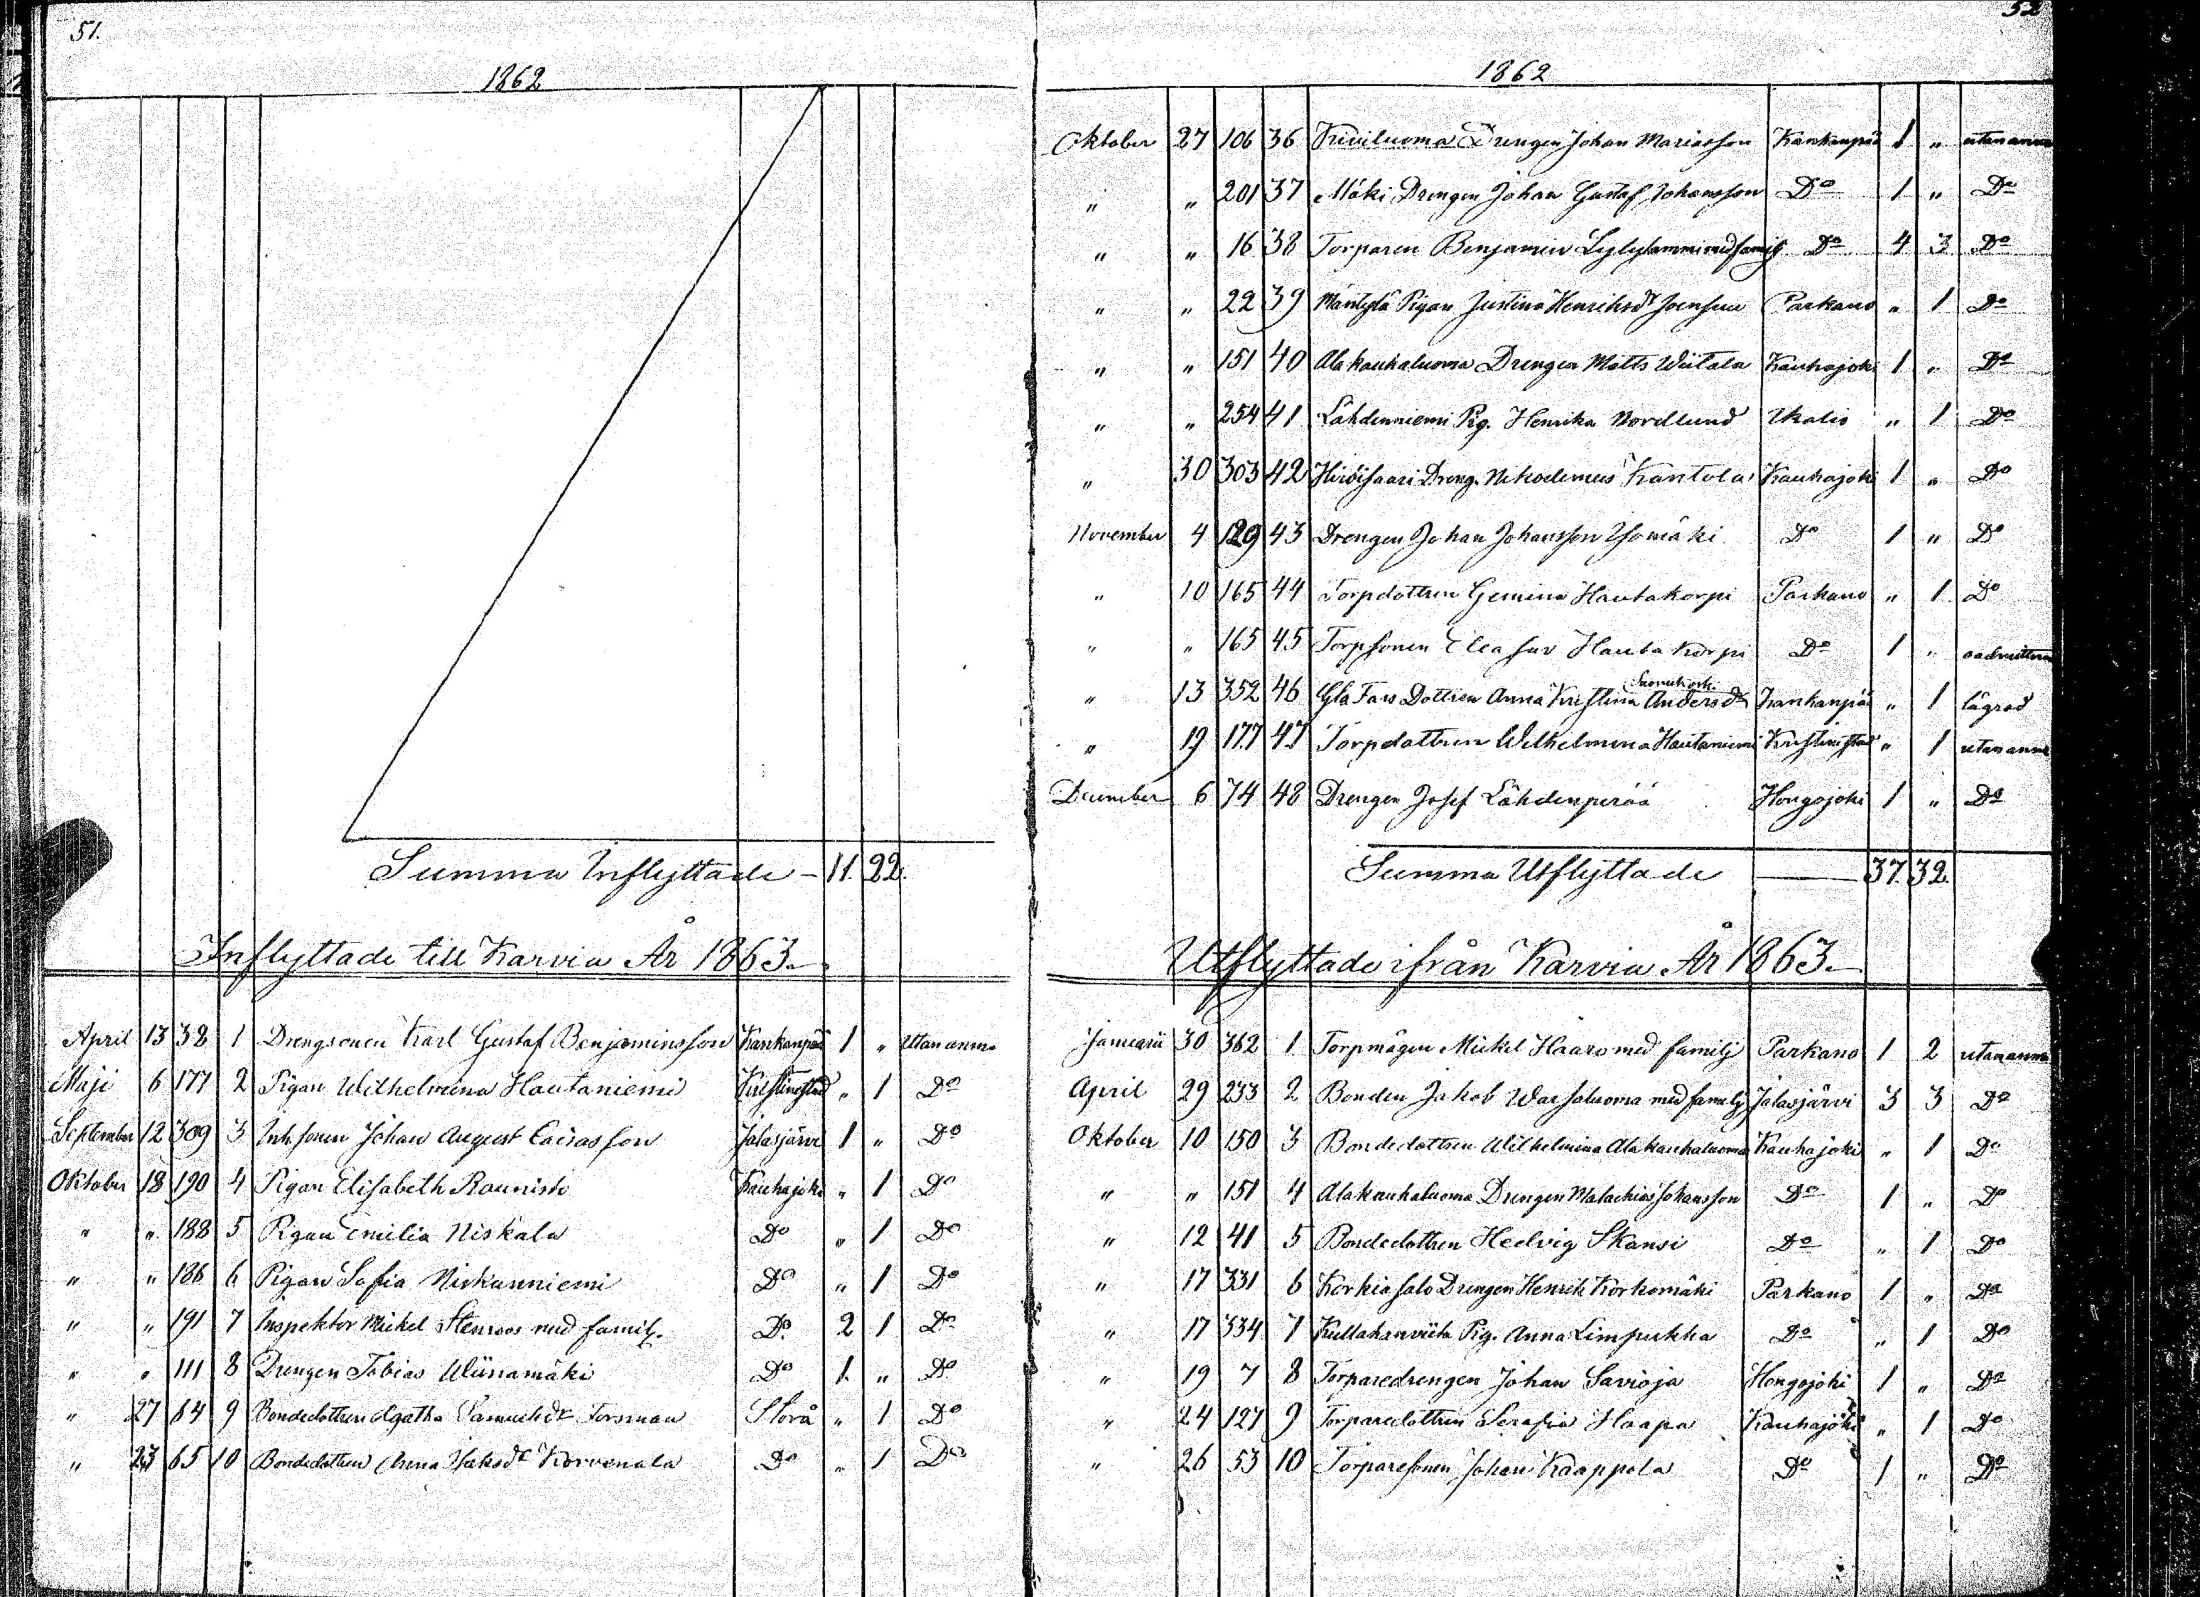 51.
1862
Summa Inflyttade - 11. 22.
Inflyttade till Karvia År 1863.
April 13 32 1 Drengsonen Karl Gustaf Benjaminsson Kankanpää 1 " Utan anm.
Maji 6 177 2 Pigan Wilhelmina Hautaniemi Kristinestad " 1 Do
September 12 309 3 Inh. sonen Johan August Esaiasson Jalasjärvi 1 " Do
Oktober 18 190 4 Pigan Elisabeth Raunisto Kauhajoki " 1 Do
" " 188 5 Pigan Emilia Niskala Do " 1 Do
" " 186 6 Pigan Sofia Niskanniemi Do " 1 Do
" " 191 7 Inspektor Mickel Stenroos med familj. Do 2 1 Do
" " 111 8 Drengen Tobias Do 1 " Do
" 27 64 9 Bondedottren Agatha Samuelsdr Forsman Storå " 1 Do
" 23 65 10 Bondedottren Anna Isaksdr Korvenala Do " 1 Do
52
1862
Oktober 27 106 36 Kiviluoma Drengen Johan Mariasson Kankanpää 1 " utan anm
" " 201 37 Mäki Drengen Johan Gustaf Johansson Do 1 " Do
" " 16 38 Torparen Benjamin Lylysammi med familj Do 4 3 Do
" " 22 39 Mäntylä Pigan Justina Henriksdr Joensuu Parkano " 1 Do
" " 151 40 Alakauhaluoma Drengen Matts Wiitala Kauhajoki 1 " Do
" " 254 41 Lähdenniemi Pig. Henrika Nordlund Ikalis " 1 Do
" 30 303 42 Hirvisaari Dreng. Nikodemus Kantola Kauhajoki 1 " Do
November 4 129 43 Drengen Johan Johansson Isomäki Do 1 " Do
" 10 165 44 Torpdottren Gemina Hautakorpi Parkano " 1 Do
" " 165 45 Torpsonen Eleasar Hautakorpi Do 1 " oadmitterad
" 13 352 46 Gla Fars Dottren Anna Kristina Andersdr Kankanpää " 1 lägrad
" 19 177 47 Torpdottren Wilhelmina Hautaniemi Kristinestad " 1 utan anm
December 6 74 48 Drengen Josef Lähdenperää Hongojoki 1 " Do
Summa Utflyttade 37. 32.
Utflyttade ifrån Karvia År 1863.
Januarii 30 362 1 Torpmågen Mickel Haaro med familj Parkano 1 2 utan anm
April 29 233 2 Bonden Jakob Warsaluoma med familj Jalasjärvi 3 3 Do
Oktober 10 150 3 Bondedottren Wilhelmina Alakauhaluoma Kauhajoki " 1 Do
" " 151 4 Alakauhaluoma Drengen Malachias Johansson Do 1 " Do
" 12 41 5 Bondedottren Hedvig Skansi Do " 1 Do
" 17 331 6 Korkiasalo Drengen Henrik Korkomäki Parkano 1 " Do
" 17 334 7 Kullakanviita Pig. Anna Limpukka Do " 1 Do
" 19 7 8 Torparedrengen Johan Savioja Hongojoki 1 " Do
" 24 127 9 Torparedottren Serafia Haapa Kauhajoki " 1 Do
" 26 53 10 Torparesonen Johan Kaappola Do 1 " Do